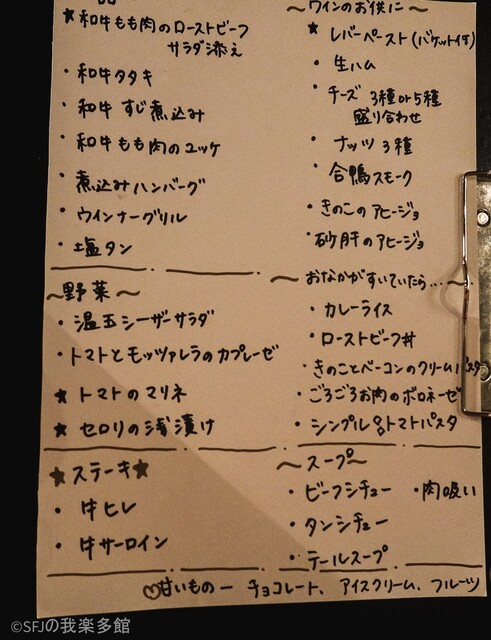 ★和牛もも肉のローストビーフ
サラダ添え
・和牛タタキ
・和牛すじ煮込み
・和牛もも肉のユッケ
・煮込みハンバーグ
・ウインナーグリル
・塩タン
～野菜～
・温玉シーザーサラダ
・トマトとモッツァレラのカプレーゼ
★トマトのマリネ
★セロリの浅漬け
★ステーキ★
・牛ヒレ
・牛サーロイン
～ワインのお供に～
★レバーペースト(バケット付)
・生ハム
・チーズ 3種or5種
盛り合わせ
・ナッツ3種
・合鴨スモーク
・きのこのアヒージョ
・砂肝のアヒージョ
～おなかがすいていたら...～
・カレーライス
・ローストビーフ丼
・きのことベーコンのクリームパスタ
・ごろごろお肉のボロネーゼ
・シンプルなトマトパスタ
～スープ～
・ビーフシチュー ・肉吸い
・タンシチュー
・テールスープ
♡甘いもの― チョコレート、アイスクリーム、フルーツ
©SFJの我楽多館